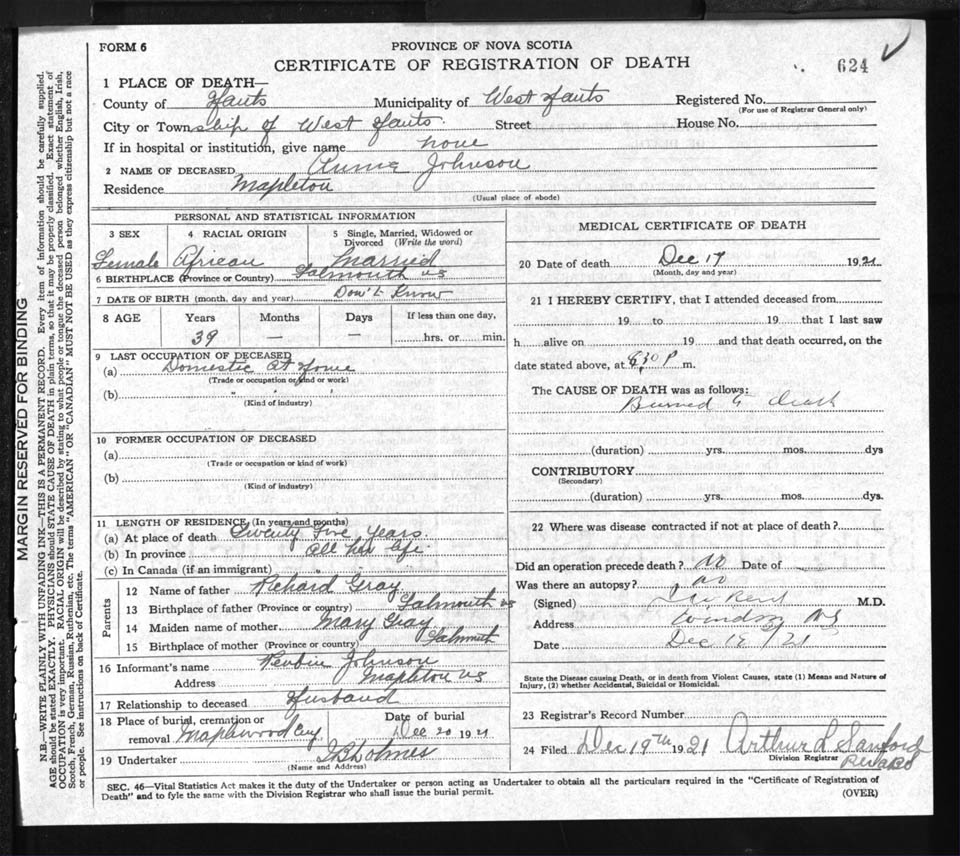 FORM 6
PROVINCE OF NOVA SCOTIA
CERTIFICATE OF REGISTRATION OF DEATH
624
1 PLACE OF DEATH—
County of Hants Municipality of West Hants Registered No.
(For use of Registrar General only)
City or Township of West Hants. Street House No.
If in hospital or institution, give name none
2 NAME OF DECEASED Annie Johnson
Residence Mapleton
(Usual place of abode)
PERSONAL AND STATISTICAL INFORMATION
3 SEX 4 RACIAL ORIGIN 5 Single, Married, Widowed or Divorced (Write the word)
Female African Married
6 BIRTHPLACE (Province or Country) Falmouth NS
7 DATE OF BIRTH (month, day and year) Don't Know
8 AGE Years Months Days If less than one day,
39 — — hrs. or min.
9 LAST OCCUPATION OF DECEASED
(a) Domestic At Home
(Trade or occupation or kind or work)
(b) " " "
(Kind of industry)
10 FORMER OCCUPATION OF DECEASED
(a)
(Trade or occupation or kind of work)
(b)
(Kind of industry)
11 LENGTH OF RESIDENCE (In years and months)
(a) At place of death Twenty Five Years.
(b) In province All her life
(c) In Canada (if an immigrant)
Parents
12 Name of father Richard Gray
13 Birthplace of father (Province or country) Falmouth NS
14 Maiden name of mother Mary Gray
15 Birthplace of mother (Province or country) Falmouth
16 Informant's name Reubin Johnson
Address Mapleton NS
17 Relationship to deceased Husband
18 Place of burial, cremation or removal Maplewood Cey Date of burial Dec 20 1921
19 Undertaker Holmes
(Name and Address)
MEDICAL CERTIFICATE OF DEATH
20 Date of death Dec 17 1921
(Month, day and year)
21 I HEREBY CERTIFY, that I attended deceased from
19 to 19 that I last saw
h alive on 19 and that death occurred, on the
date stated above, at 8,30 P m.
The CAUSE OF DEATH was as follows:
Burned to death
(duration) yrs. mos. dys
CONTRIBUTORY
(Secondary)
(duration) yrs. mos. dys.
22 Where was disease contracted if not at place of death?
Did an operation precede death? no Date of
Was there an autopsy? no
(Signed) Reid M.D.
Address Windsor NS
Date Dec 18 /21
State the Disease causing Death, or in death from Violent Causes, state (1) Means and Nature of
Injury, (2) whether Accidental, Suicidal or Homicidal.
23 Registrar's Record Number
24 Filed Dec 19th 1921 Arthur L Sanford
Division Registrar
SEC. 46—Vital Statistics Act makes it the duty of the Undertaker or person acting as Undertaker to obtain all the particulars required in the "Certificate of Registration of
Death" and to fyle the same with the Division Registrar who shall issue the burial permit.
(OVER)
MARGIN RESERVED FOR BINDING
N.B.—WRITE PLAINLY WITH UNFADING INK—THIS IS A PERMANENT RECORD. Every item of information should be carefully supplied.
AGE should be stated EXACTLY. PHYSICIANS should STATE CAUSE OF DEATH in plain terms, so that it may be properly classified. Exact statement of
OCCUPATION is very important. RACIAL ORIGIN will be described by stating to what people or tongue the deceased person belonged, whether English, Irish,
Scotch, French, German, Russian, Ruthenian, etc. The terms "AMERICAN" OR "CANADIAN" MUST NOT BE USED as they express citizenship but not a race
or people. See instructions on back of Certificate.